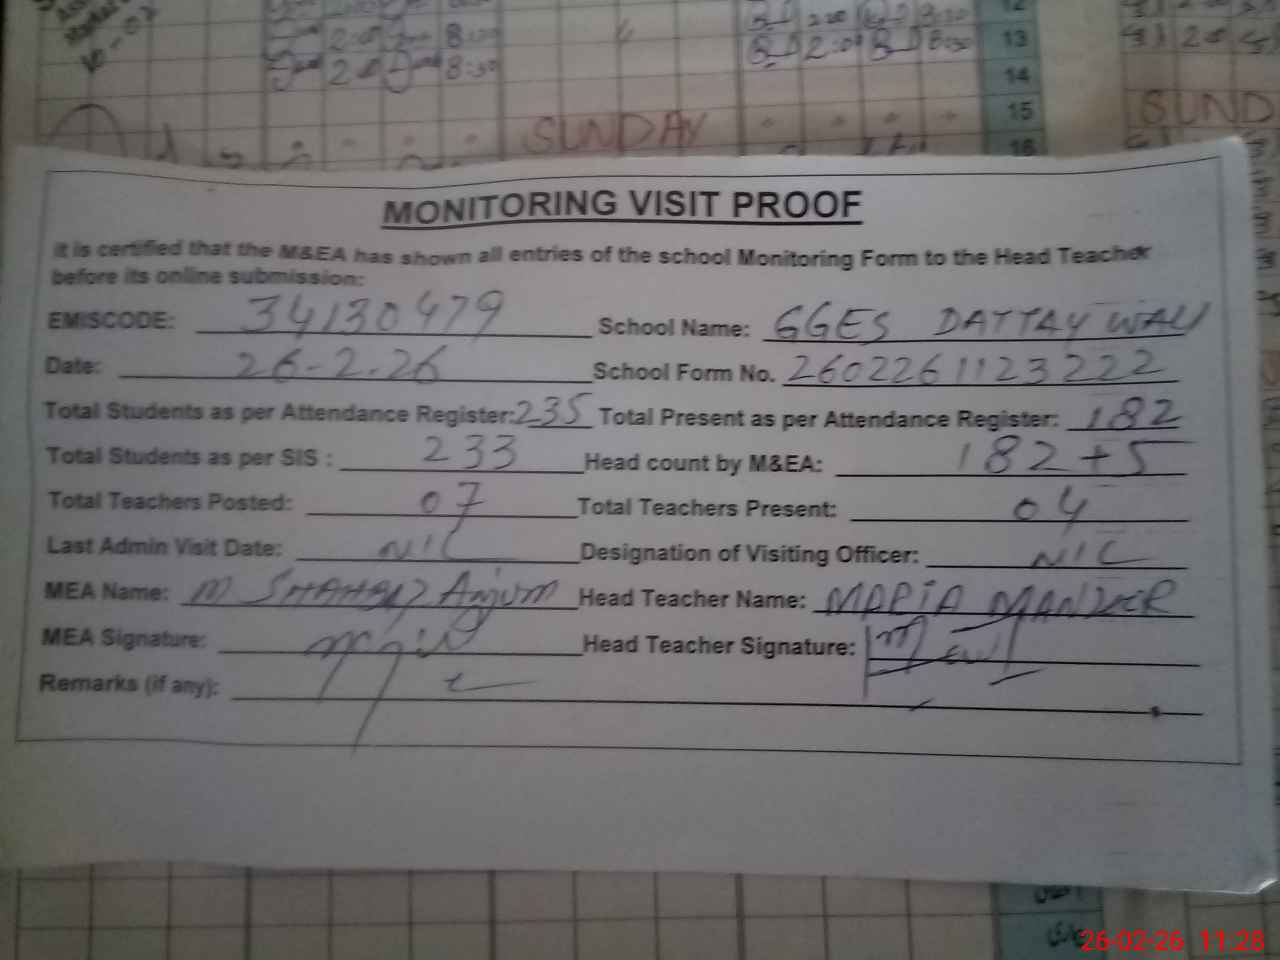 2:00 8:30
2:00 8:30
2:00 8:30
2:00 8:30
12
13
14
15
16
SUNDAY
SUND
MONITORING VISIT PROOF
It is certified that the M&EA has shown all entries of the school Monitoring Form to the Head Teacher
before its online submission:
EMISCODE: 34130479 School Name: GGES DATTAY WALI
Date: 26-2-26 School Form No. 2602261123222
Total Students as per Attendance Register: 235 Total Present as per Attendance Register: 182
Total Students as per SIS : 233 Head count by M&EA: 182+5
Total Teachers Posted: 07 Total Teachers Present: 04
Last Admin Visit Date: NIL Designation of Visiting Officer: NIL
MEA Name: M Anjum Head Teacher Name: MARIA
MEA Signature: Head Teacher Signature:
Remarks (if any):
26-02-26 11:28